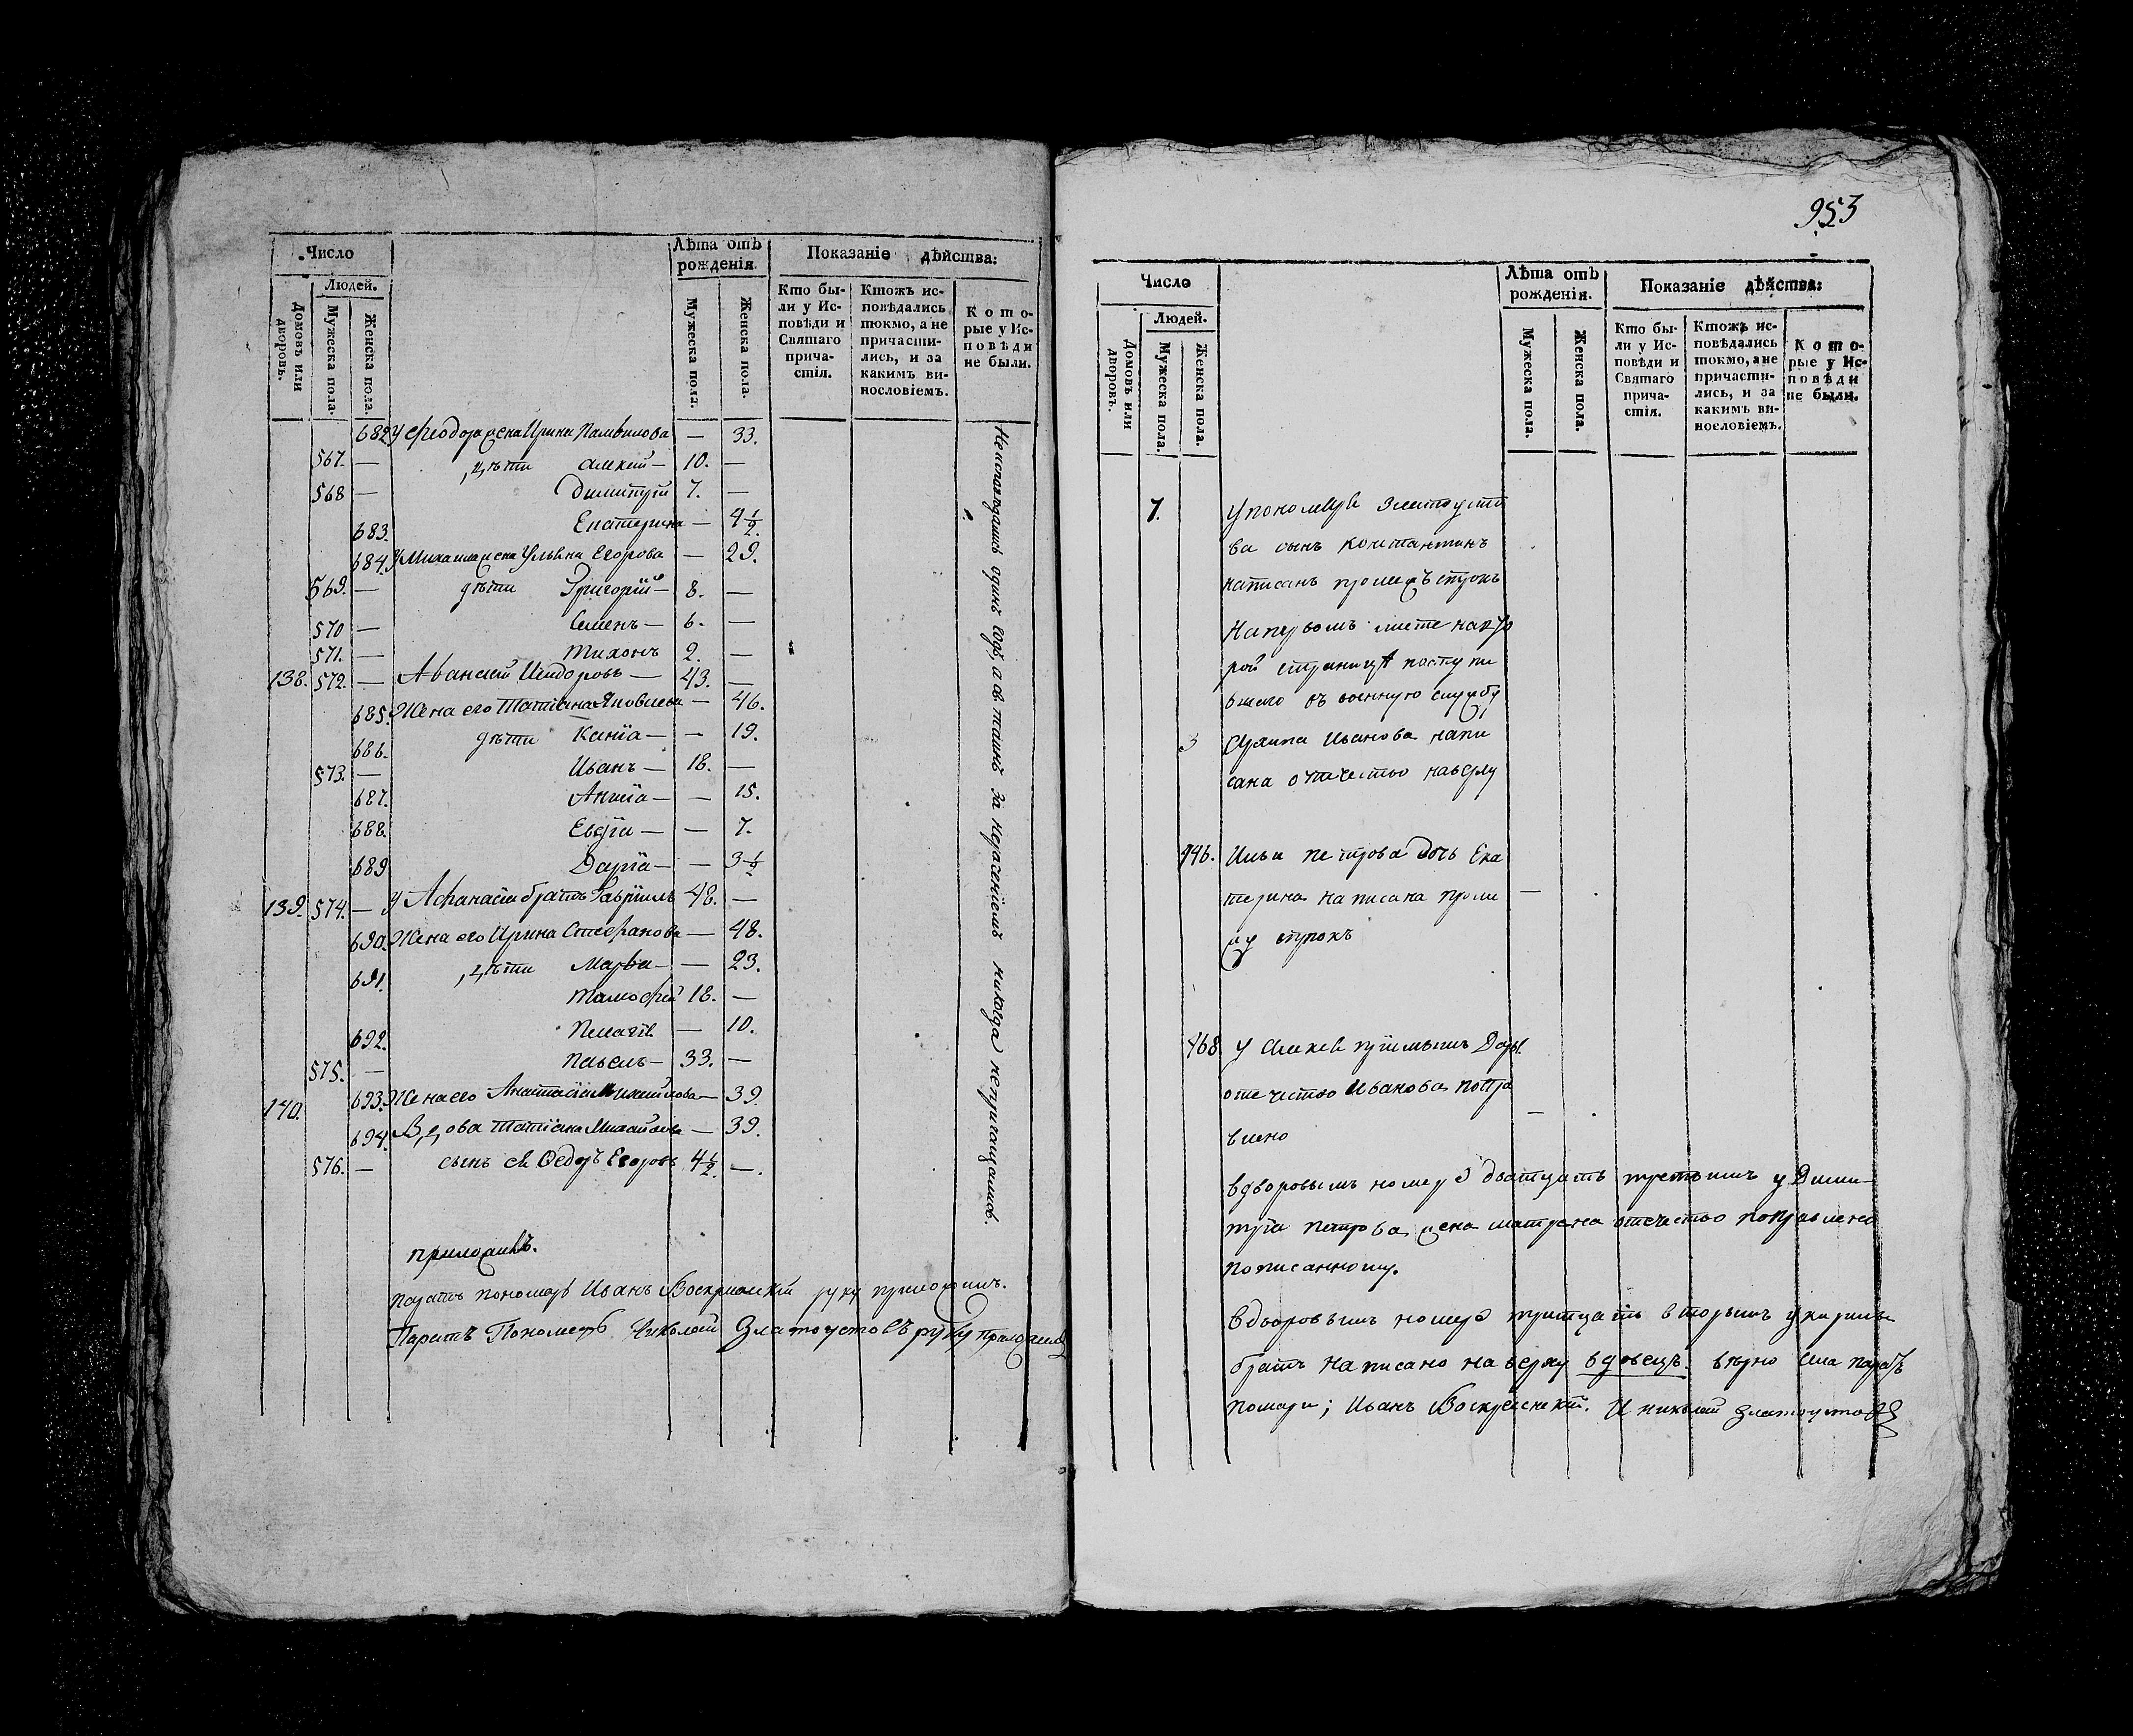 Число
Людей.
Домовъ или дворовъ.
Мужеска пола.
Женска пола.
Лѣта отъ рожденія.
Мужеска пола.
Женска пола.
Показаніе дѣйства:
Кто бы-
ли у Ис-
повѣди и
Святаго
прича-
стія.
Ктожъ ис-
повѣдались
токмо, а не
причасти-
лись, и за
какимъ ви-
нословіемъ.
Кото-
рые у Ис-
повѣди
не были.
682 У Феодора жена Ирина Памвилова — 33.
567. — дѣти Алексій — 10. —
568 — Димитрій 7. —
683. Екатерина — 4 1/2.
684. У Михаила жена Ульяна Егорова — 29.
569. — дѣти Григорій — 8. —
570 — Семенъ — 6. —
571. — Тихонъ 2. —
138. 572. — Сидоровъ — 43. —
685. Жена его Татіана Яковлева — 46.
686. дѣти — — 19.
573. — Иванъ — 18. —
687. — — 15.
688. — — 7.
689 Дарія — — 3 1/2
139. 574. — У Афанасія братъ Гавріилъ 48. —
690. Жена его Ирина Стефанова — 48.
691. дѣти Марѳа — — 23.
18. —
692. — 10.
575. — Павелъ — 33. —
693. Жена его Анастасія Михайлова — 39.
140. 694. Вдова Татіана Михайлова — 39.
576. — сынъ ея Ѳедоръ Егоровъ 4 1/2. —.
Неисповѣдались одинъ годъ, а св. таинъ за нерасеніемъ никогда непричащались.
приложилъ.
Иванъ Воскресенскій руку приложилъ.
Пономарь Николай Златоустовъ руку приложилъ
953
Число
Людей.
Домовъ или дворовъ.
Мужеска пола.
Женска пола.
Лѣта отъ рожденія.
Мужеска пола.
Женска пола.
Показаніе дѣйства:
Кто бы-
ли у Ис-
повѣди и
Святаго
прича-
стія.
Ктожъ ис-
повѣдались
токмо, а не
причасти-
лись, и за
какимъ ви-
нословіемъ.
Кото-
рые у Ис-
повѣди
не были.
7. У пономаря Златоусто
ва сынъ Константинъ
написанъ промежъ строкъ
На первомъ листе на вто
рой страницѣ поступи
вшаго въ военную службу
3 Иванова напи
сана отчество наверху
446. Ильи Петрова дочь Ека
терина написана проме
жу строкъ
468 У
отечество Иванова попра
влено
в дворовымъ номерѣ дватцать третьимъ у Дими-
трія Петрова жена матрена отечество поправлено
по писанному.
в дворовымъ номерѣ тритцать вторымъ у
братъ написано наверху вдовецъ. вѣрно
Иванъ Воскресенскій. И николай Златоустовъ